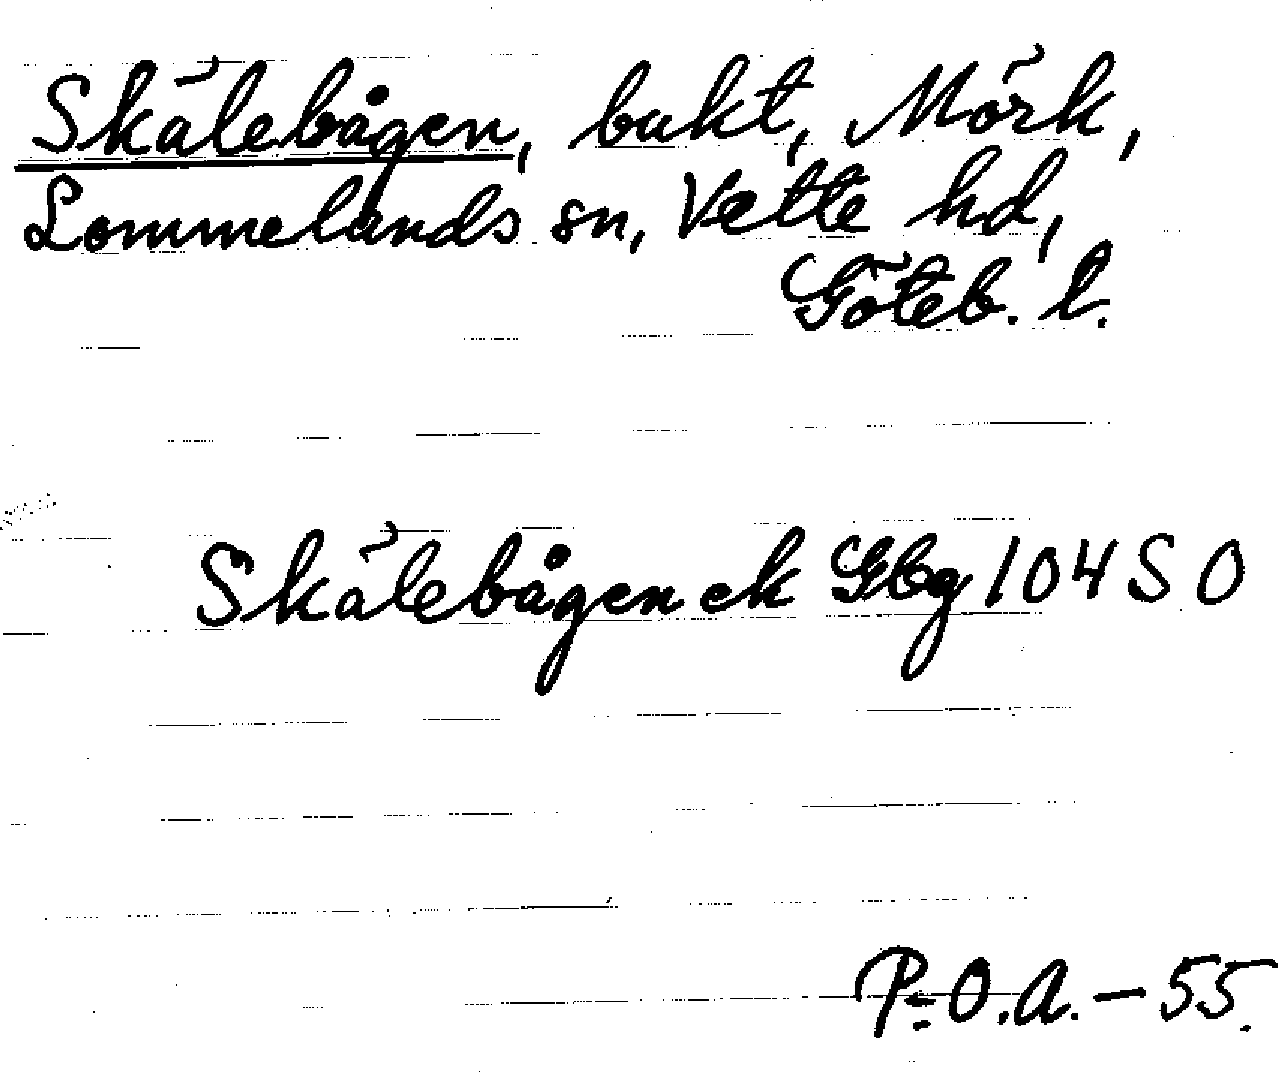 Skälebågen, bukt, Mörk,
Lommelands sn, Vette hd,
Göteb. l.
Skälebågen ek Gbg 104 S O
P-O.A. – 55.